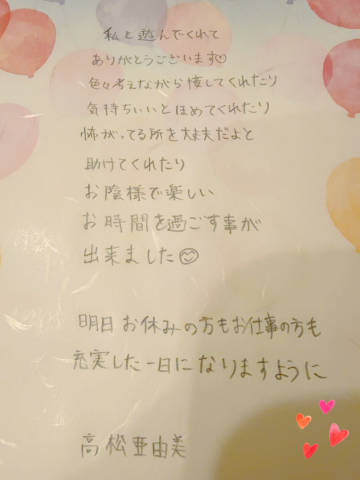 私と遊んでくれて
ありがとうございます♡
色々考えながら接してくれたり
気持ちいいとほめてくれたり
怖がってる所を大丈夫だよと
助けてくれたり
お陰様で楽しい
お時間を過ごす事が
出来ました😊
明日お休みの方もお仕事の方も
充実した一日になりますように
高松亜由美